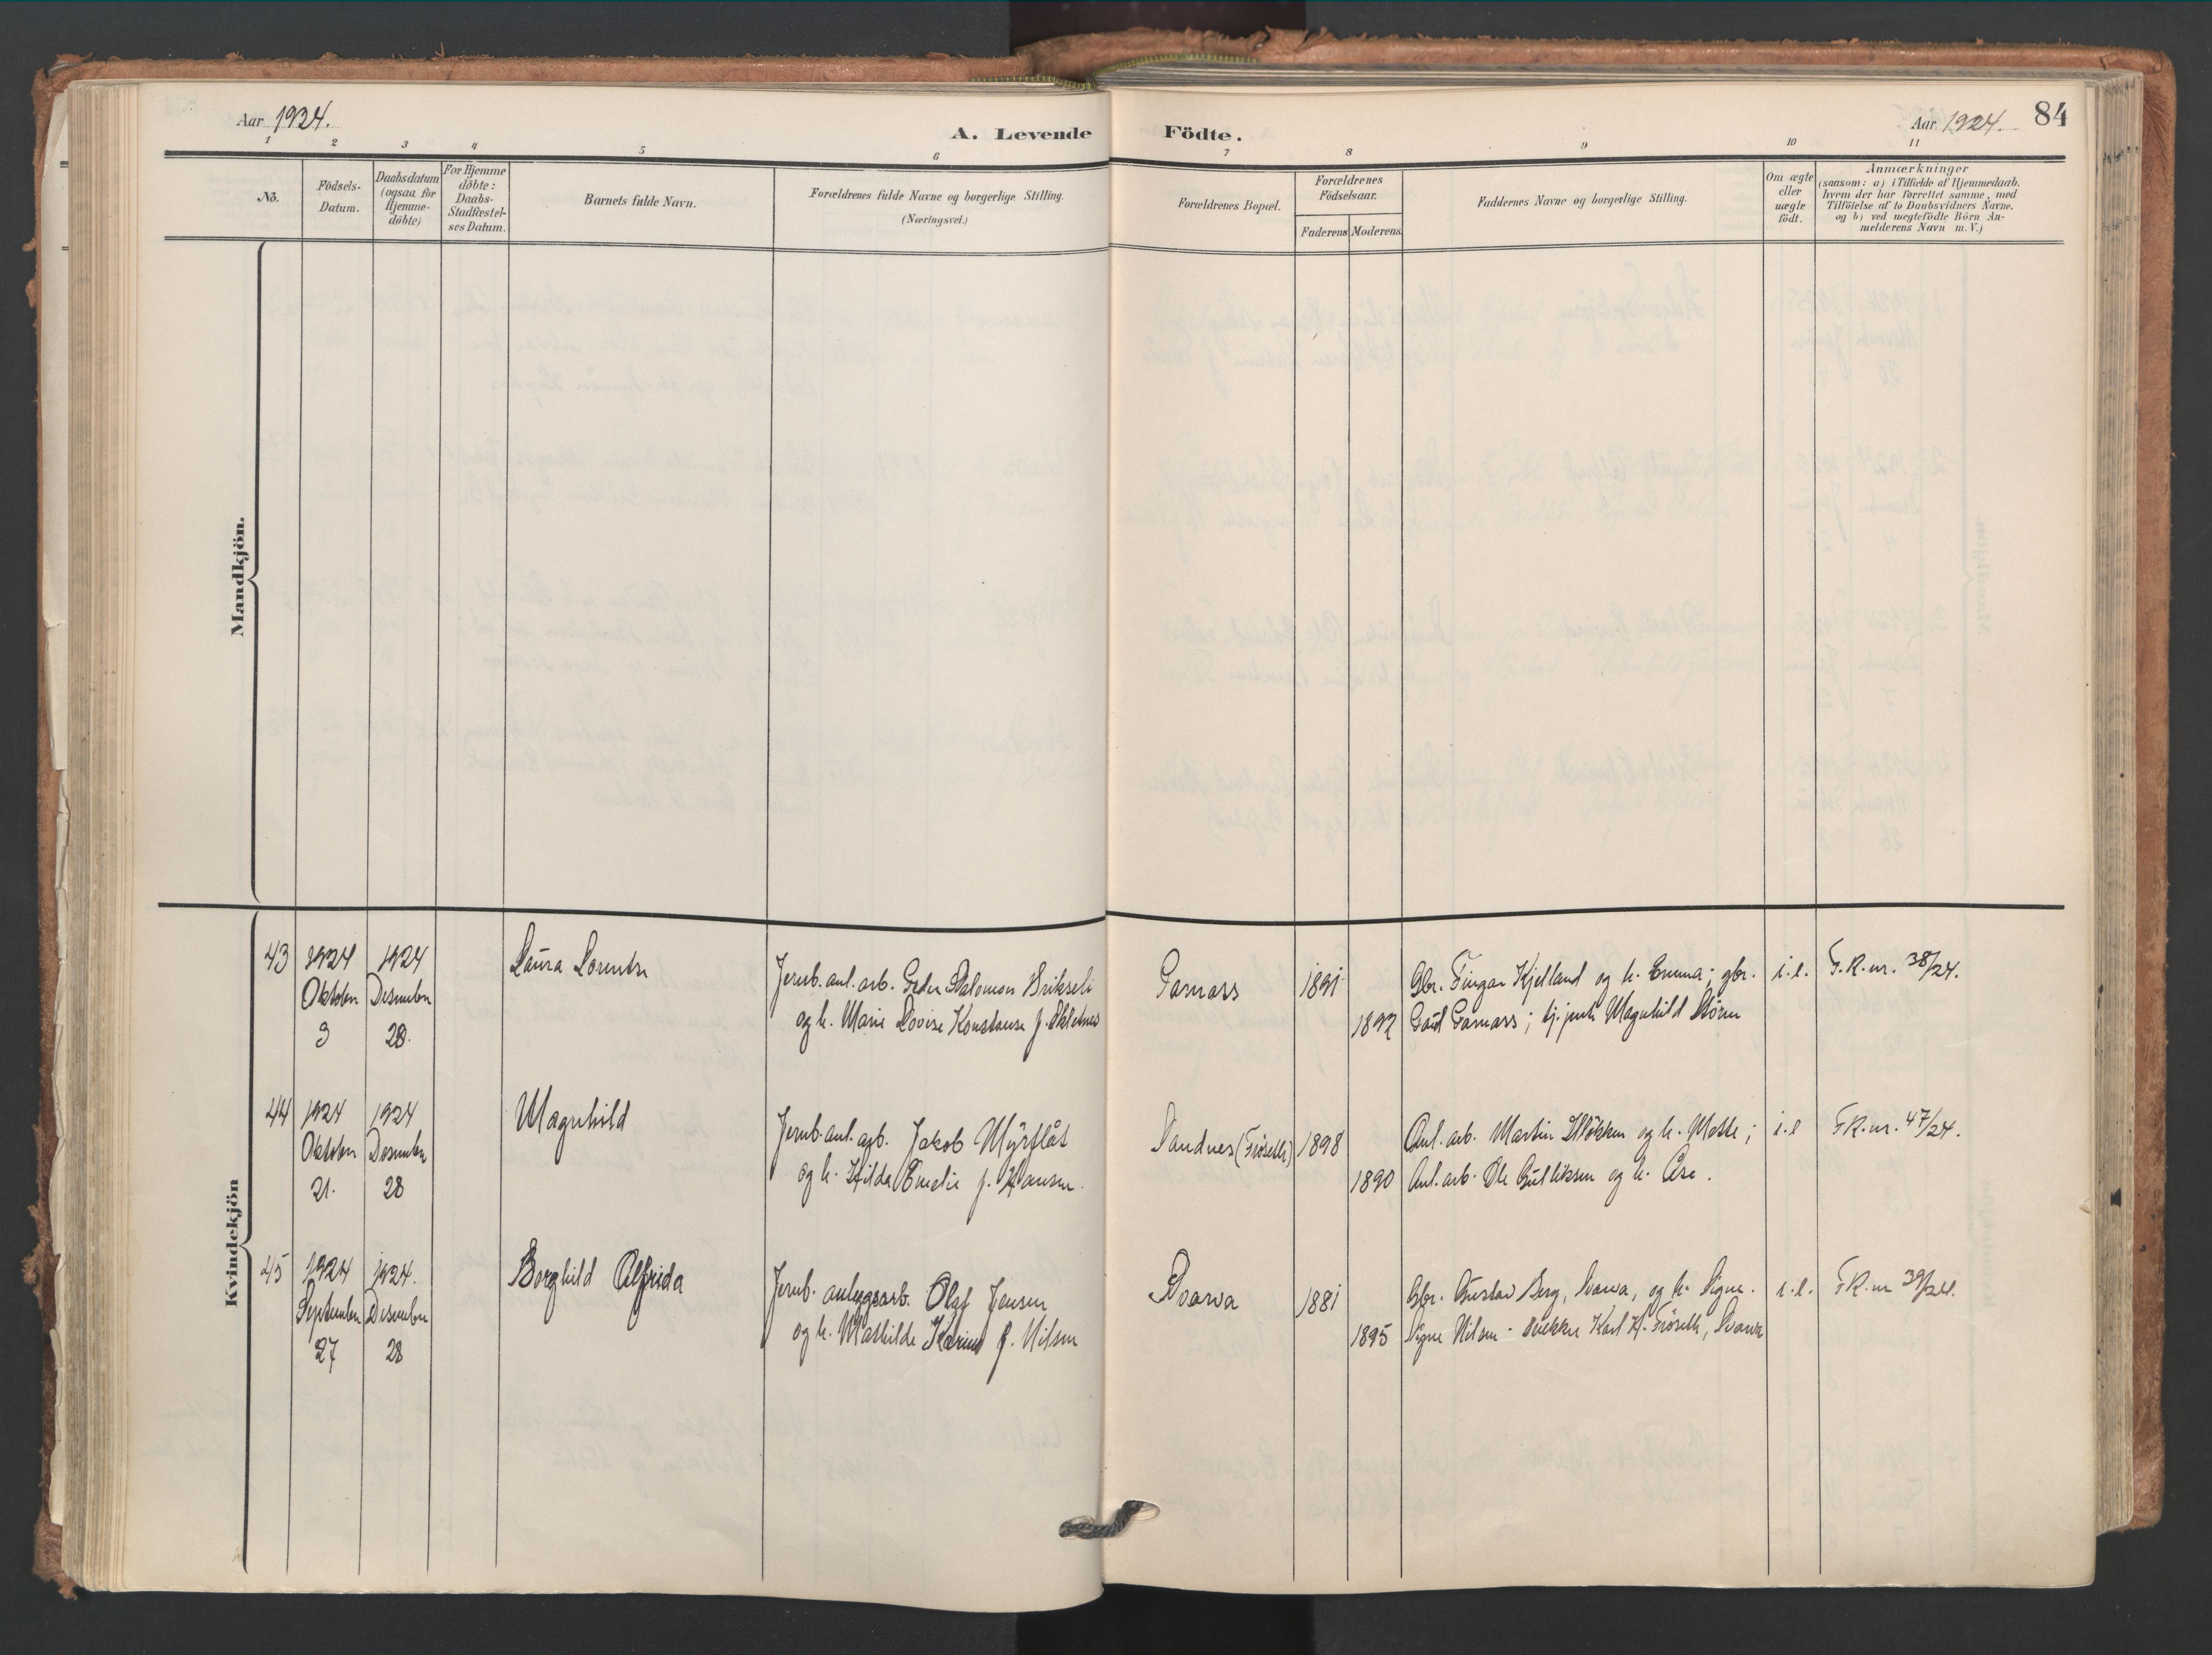 Aar 1924.
A. Levende Födte.
Aar 1924.
84
1 2 3 4 5 6 7 8 9 10 11
No.
Födsels-
Datum.
Daabsdatum
(ogsaa for
Hjemme-
döbte)
For Hjemme
döbte:
Daabs-
Stadfæstel-
ses Datum.
Barnets fulde Navn.
Forældrenes fulde Navne og borgerlige Stilling.
(Næringsvei.)
Forældrenes Bopæl.
Forældrenes
Födselsaar.
Faderens Moderens
Faddernes Navne og borgerlige Stilling.
Om ægte
eller
uægte
födt.
Anmærkninger
(saasom: a) i Tilfælde af Hjemmedaab.
hvem der har forrettet samme, med
Tilföielse af to Daabsvidners Navne.
og b) ved uegtefödte Börn An-
melderens Navn m.V.)
Mandkjön.
Kvindekjön
43
1924
Oktober
3
1924
Desember
28.
Laura Lorentse
Jernb. anl. arb. Peder Salomon
og h. Marie Lovise Konstanse f.
1891
1892
Gbr. Fingar Kjelland og h. Emma; gbr.
Magnhild
i.e.
F.R. nr. 38/24.
44
1924
Oktober
21.
1924
Desember
28
Magnhild
Jernb. anl. arb. Jakob Myrflåt
og h. Hilda Emelie f. Hansen.
Sandnes (Fröseth)
1898
1890
Anl. arb. Martin Mökken og h. Mette;
Anl. arb. Ole Gulliksen og h. Åse.
i.e
F.R. nr. 47/24.
45
1924
September
27
1924.
Desember
28
Borghild Alfrida
Jernb. anlegsarb. Olaf Jensen
og h. Mathilde Karine f. Nilsen
Svarva
1881
1895
Gbr. Gustav Berg, Svarva, og h. Signe.
Signe Nilsen - Karl K. Fröseth, Svarva
i.e.
F.R. nr 39/24.